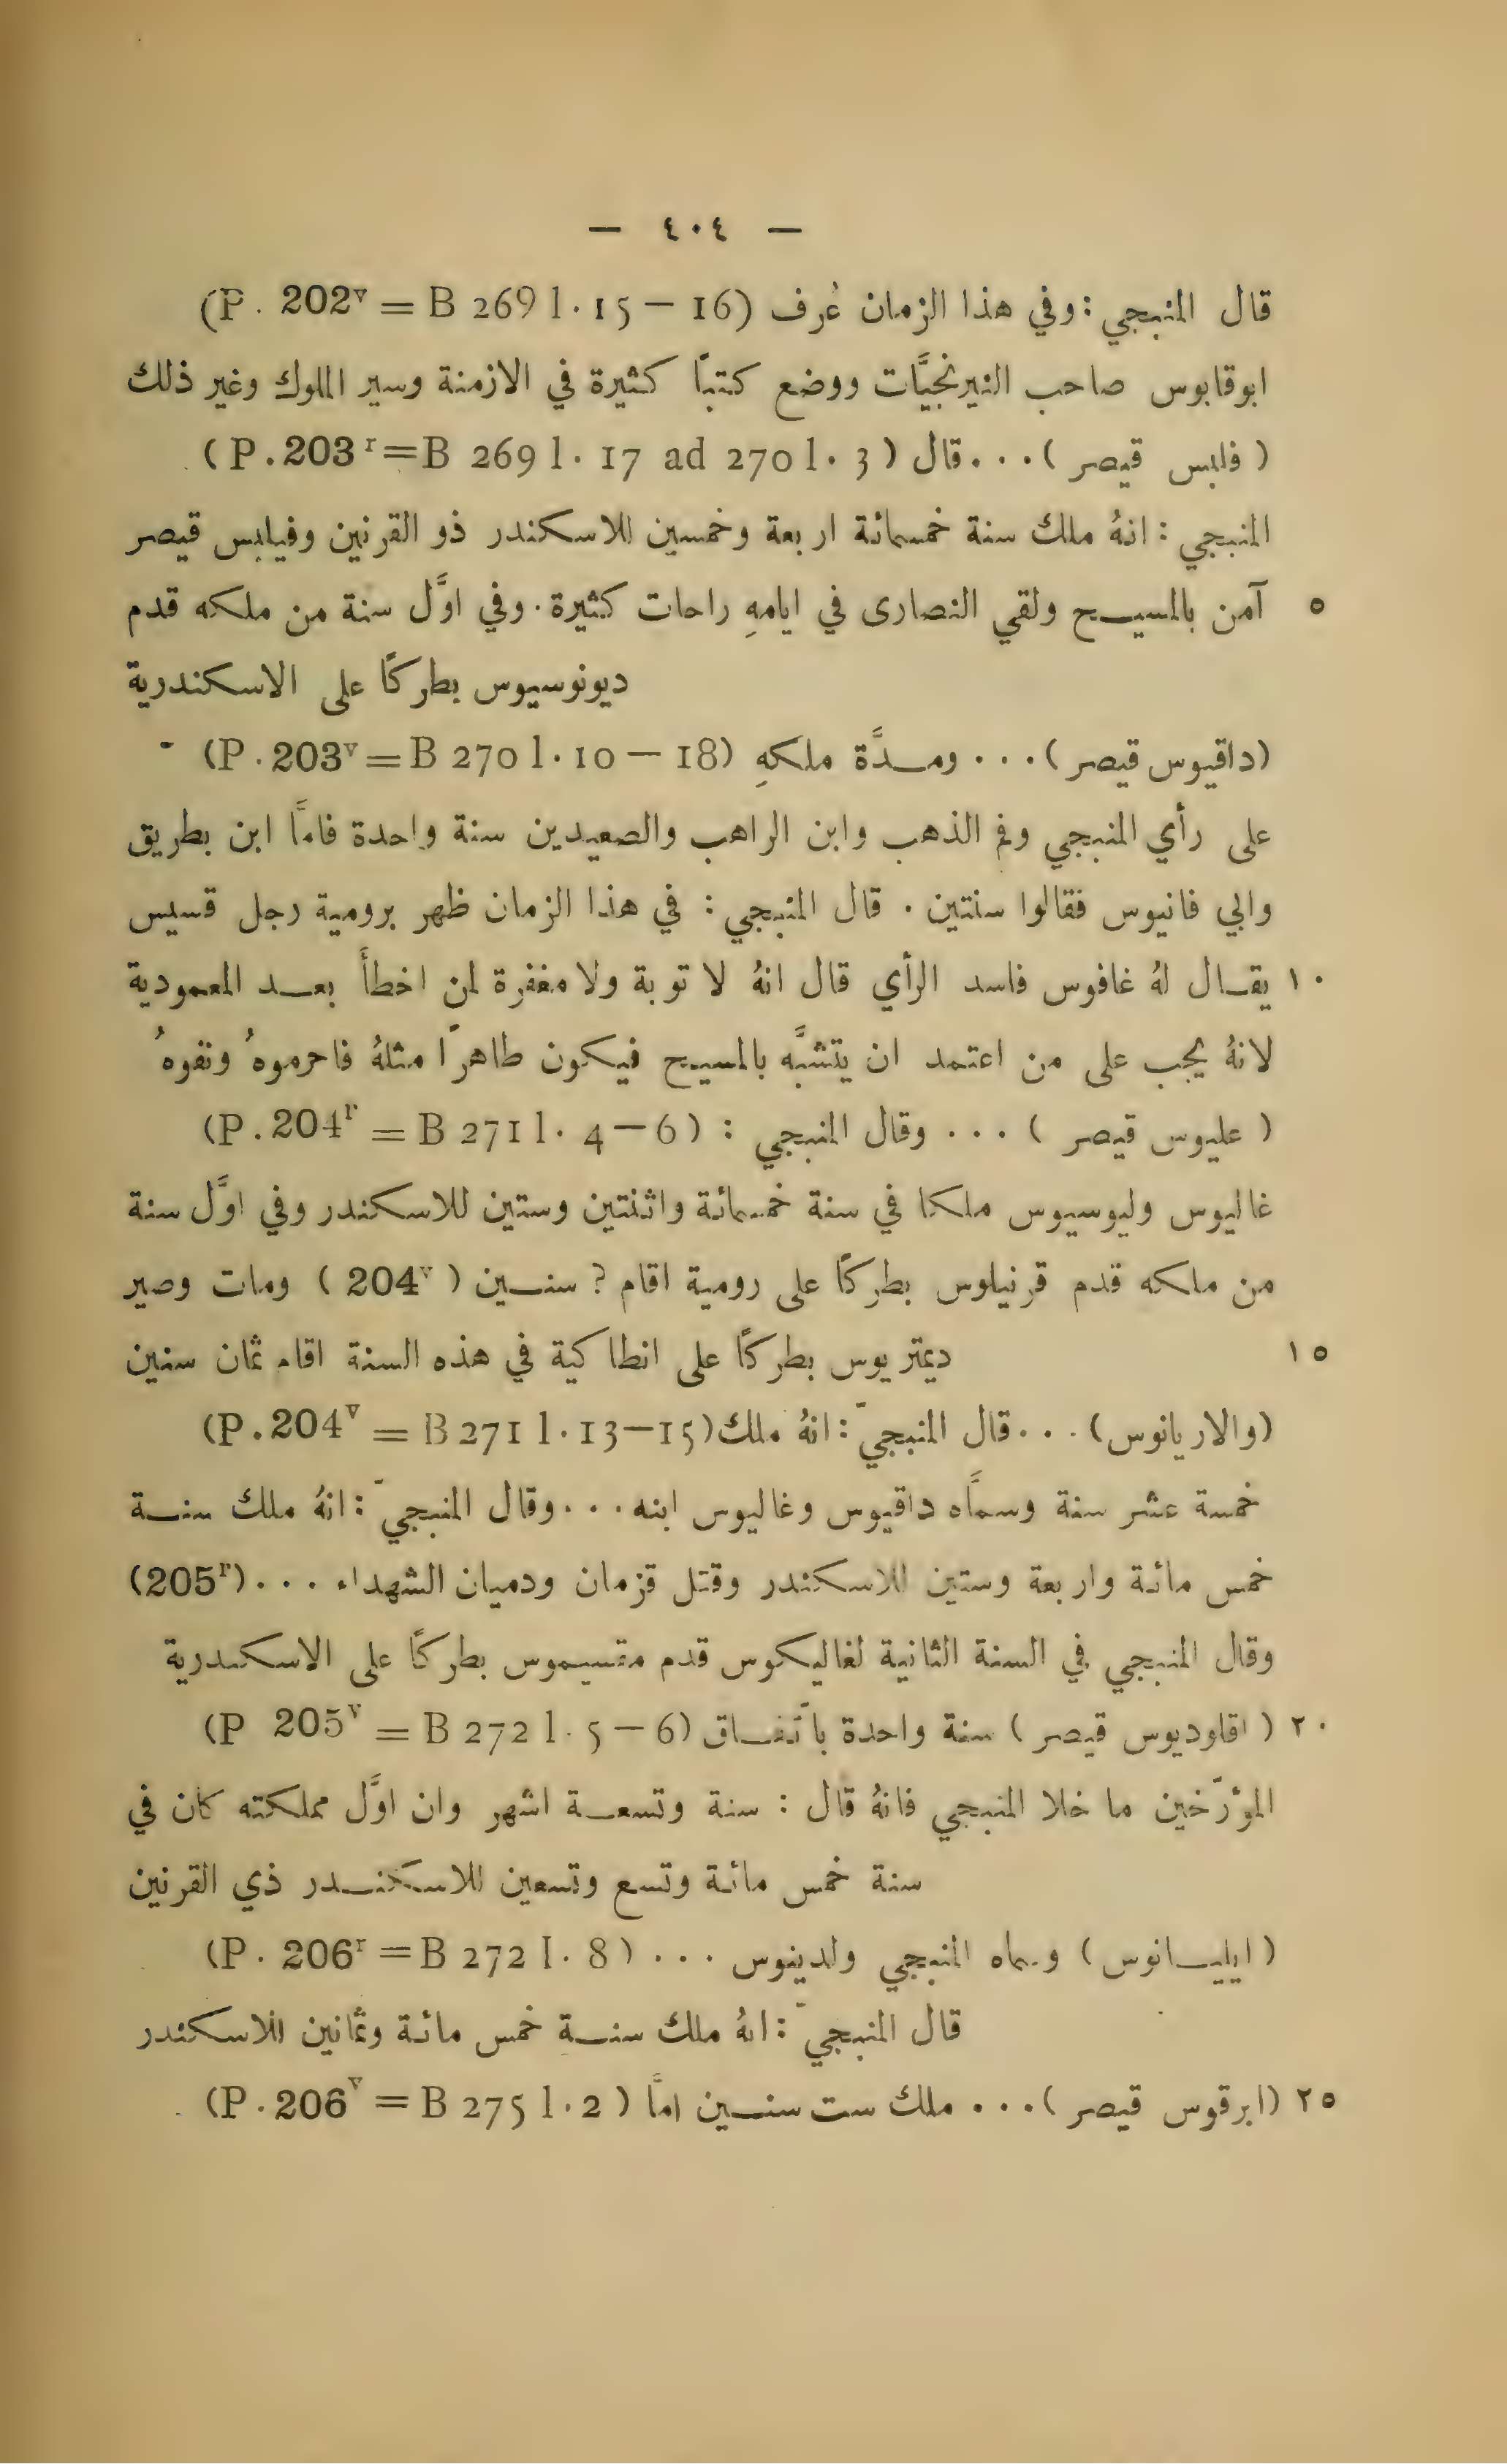 — ٤٠٤ —
قال المنبجي : وفي هذا الزمان عُرف (P. 202ᵛ = B 269 l. 15 – 16)
ابوقابوس صاحب النيرنجيَّات ووضع كتبًا كثيرة في الازمنة وسير الملوك وغير ذلك
( فلبس قيصر ) . . . قال (P. 203ʳ = B 269 l. 17 ad 270 l. 3)
المنبجي : انهُ ملك سنة خمسمائة اربعة وخمسين للاسكندر ذو القرنين وفيلبس قيصر
٥ آمن بالمسيح ولقي النصارى في ايامهِ راحات كثيرة . وفي اوَّل سنة من ملكه قدم
ديونوسيوس بطركًا على الاسكندرية
(داقيوس قيصر) . . . ومدَّة ملكهِ (P. 203ᵛ = B 270 l. 10 – 18)
على رأي المنبجي وفم الذهب وابن الراهب والصعيدين سنة واحدة فامَّا ابن بطريق
وابي فانيوس فقالوا سنتين . قال المنبجي : في هذا الزمان ظهر برومية رجل قسيس
١٠ يقال لهُ غافوس فاسد الرأي قال انهُ لا توبة ولا مغفرة لمن اخطأ بعد المعمودية
لانهُ يجب على من اعتمد ان يتشبَّه بالمسيح فيكون طاهرًا مثلهُ فاحرموهُ ونفوهُ
( عليوس قيصر ) . . . وقال المنبجي : (P. 204ʳ = B 271 l. 4 – 6)
غاليوس وليوسيوس ملكا في سنة خمسمائة واثنتين وستين للاسكندر وفي اوَّل سنة
من ملكه قدم قرنيلوس بطركًا على رومية اقام ? سنين (204ᵛ) ومات وصير
١٥ ديمتريوس بطركًا على انطاكية في هذه السنة اقام ثمان سنين
(والاريانوس) . . . قال المنبجيّ : انهُ ملك (P. 204ᵛ = B 271 l. 13 – 15)
خمسة عشر سنة وسمَّاه داقيوس وغاليوس ابنه . . . وقال المنبجيّ : انهُ ملك سنة
خمس مائة واربعة وستين للاسكندر وقتل قزمان ودميان الشهداء . . . (205ʳ)
وقال المنبجي في السنة الثانية لغاليكوس قدم مقسيموس بطركًا على الاسكندرية
٢٠ ( اقلوديوس قيصر ) سنة واحدة باتّفاق (P 205ᵛ = B 272 l. 5 – 6)
المؤرّخين ما خلا المنبجي فانهُ قال : سنة وتسعة اشهر وان اوَّل مملكته كان في
سنة خمس مائة وتسع وتسعين للاسكندر ذي القرنين
( ايليانوس ) وسماه المنبجي ولدينوس . . . (P. 206ʳ = B 272 l. 8)
قال المنبجيّ : انهُ ملك سنة خمس مائة وثمانين للاسكندر
٢٥ (ابرقوس قيصر) . . . ملك ست سنين امَّا (P. 206ᵛ = B 275 l. 2)